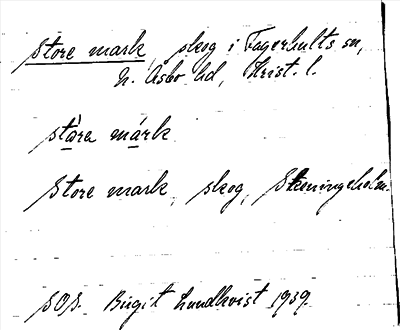 Store mark, skog i Fagerhults sn,
N. Åsbo hd, Krist. l.
stàra márk
Store mark, skog, Skäningeholm.
SOS. Birgit Lundkvist 1939.